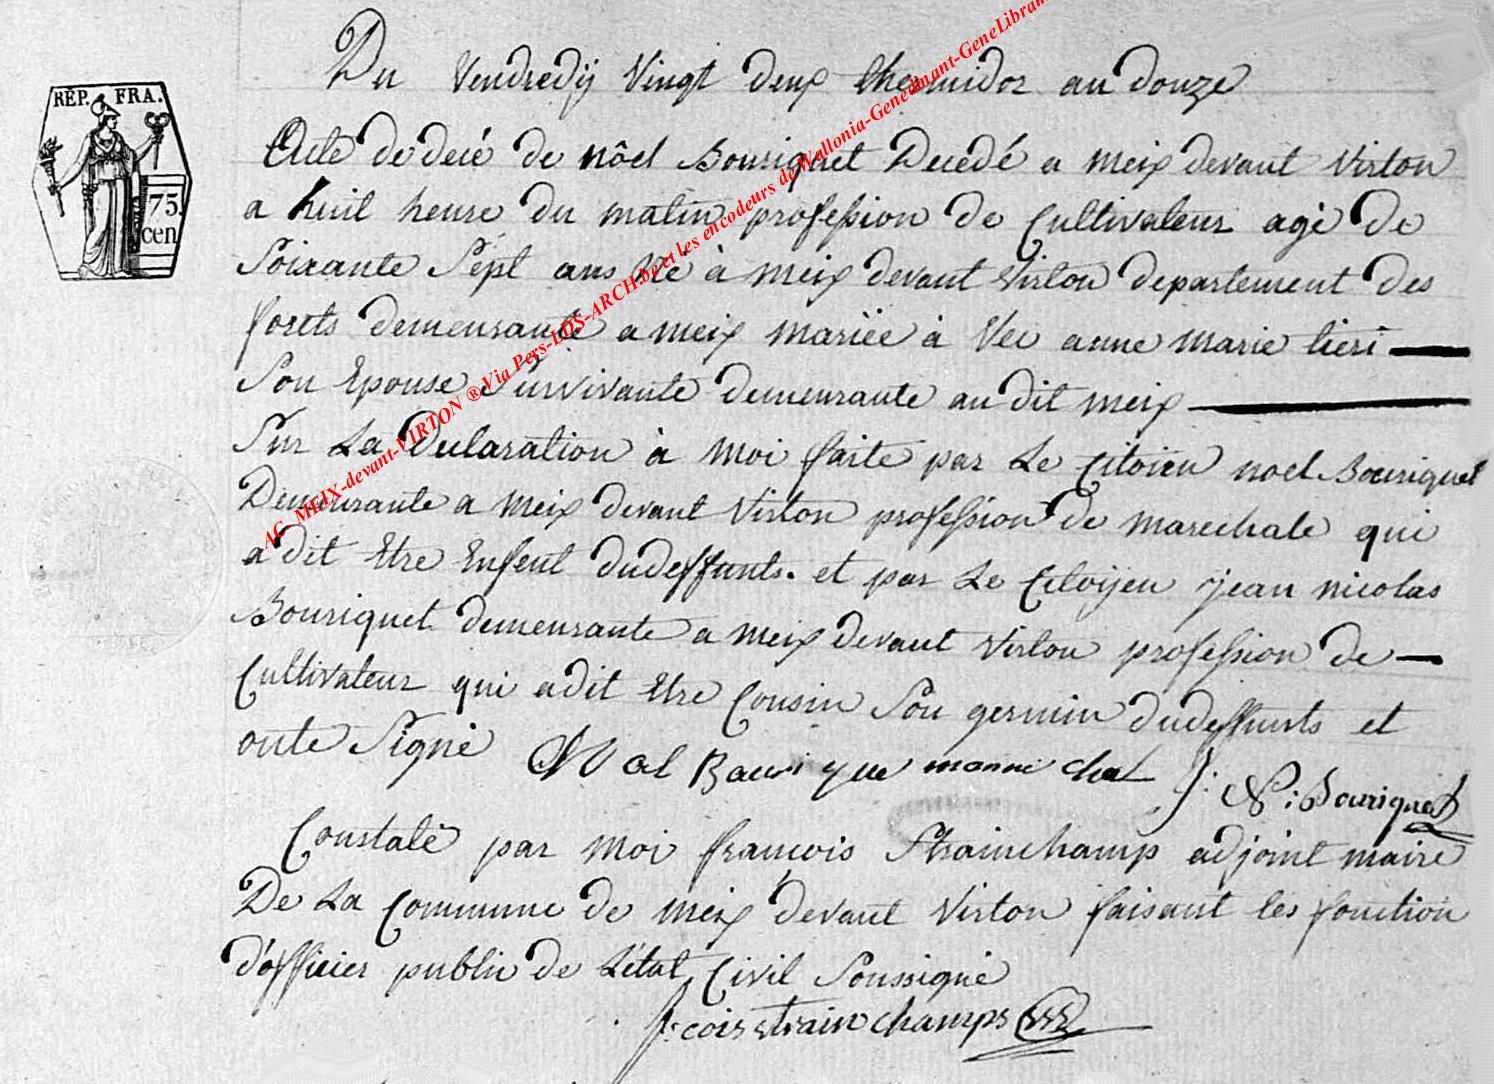 RÉP. FRA.
75.
cen
Du Vendredÿ Vingt deux thermidor an douze
Acte de decé de nôel Bouriquet Decedé a meix devant Virton
a huit heure du matin profession de Cultivateur agé de
Soixante Sept ans né à meix devant Virton departement des
forets demeurante a meix mariée à Vec anne marie tieri
Son Epouse Survivante demeurante au dit meix
Sur La Declaration à moi faite par Le Citoien noel Bouriquet
Demeurante a meix devant Virton profession de marechale qui
a dit Etre Enfent dudeffunts. et par Le Citoijen jean nicolas
Bouriquet demeurante a meix devant Virton profession de
Cultivateur qui a dit Etre Cousin Sou germin dudeffunts et
onte Signé Noal Bauri que J: N: Bouriquet
Constaté par moi françois Strainchamp adjoint maire
De La Commune de meix devant Virton faisant les fonction
d'officier public de L'état Civil Soussigné
f:cois strainchamps
AC_MEIX-devant-VIRTON ® Via Pers-LDS-ARCH.be et les encodeurs de Wallonia-Genedinant-GeneLibran